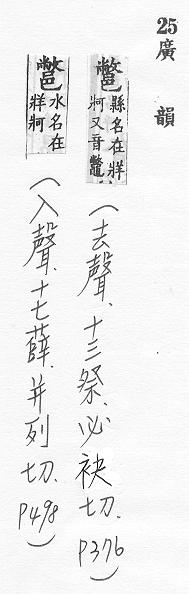 25 廣韻
鄨 縣名在牂
牁又音鼈
（去聲、十三祭、必袂切、P376）
鄨 水名在
牂牁
（入聲、十七薛、并列切、P498）